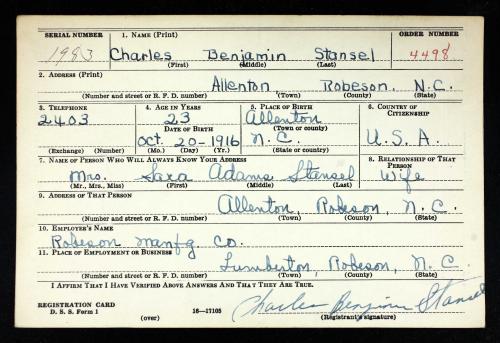 SERIAL NUMBER 1. NAME (Print) ORDER NUMBER
1983 Charles Benjamin Stansel 4498
(First) (Middle) (Last)
2. ADDRESS (Print)
Allenton Robeson, N.C.
(Number and street or R. F. D. number) (Town) (County) (State)
3. TELEPHONE 4. AGE IN YEARS 5. PLACE OF BIRTH 6. COUNTRY OF CITIZENSHIP
2403 23 Allenton
DATE OF BIRTH (Town or county)
Oct. 20-1916 N.C. U.S.A.
(Exchange) (Number) (Mo.) (Day) (Yr.) (State or country)
7. NAME OF PERSON WHO WILL ALWAYS KNOW YOUR ADDRESS 8. RELATIONSHIP OF THAT PERSON
Mrs. Sara Adams Stansel Wife
(Mr., Mrs., Miss) (First) (Middle) (Last)
9. ADDRESS OF THAT PERSON
Allenton, Robeson, N.C.
(Number and street or R. F. D. number) (Town) (County) (State)
10. EMPLOYER'S NAME
Robeson Manfg. Co.
11. PLACE OF EMPLOYMENT OR BUSINESS
Lumberton, Robeson, N.C.
(Number and street or R. F. D. number) (Town) (County) (State)
I AFFIRM THAT I HAVE VERIFIED ABOVE ANSWERS AND THAT THEY ARE TRUE.
REGISTRATION CARD Charles Benjamin Stansel
D. S. S. Form 1 (over) 16—17105 (Registrant's signature)